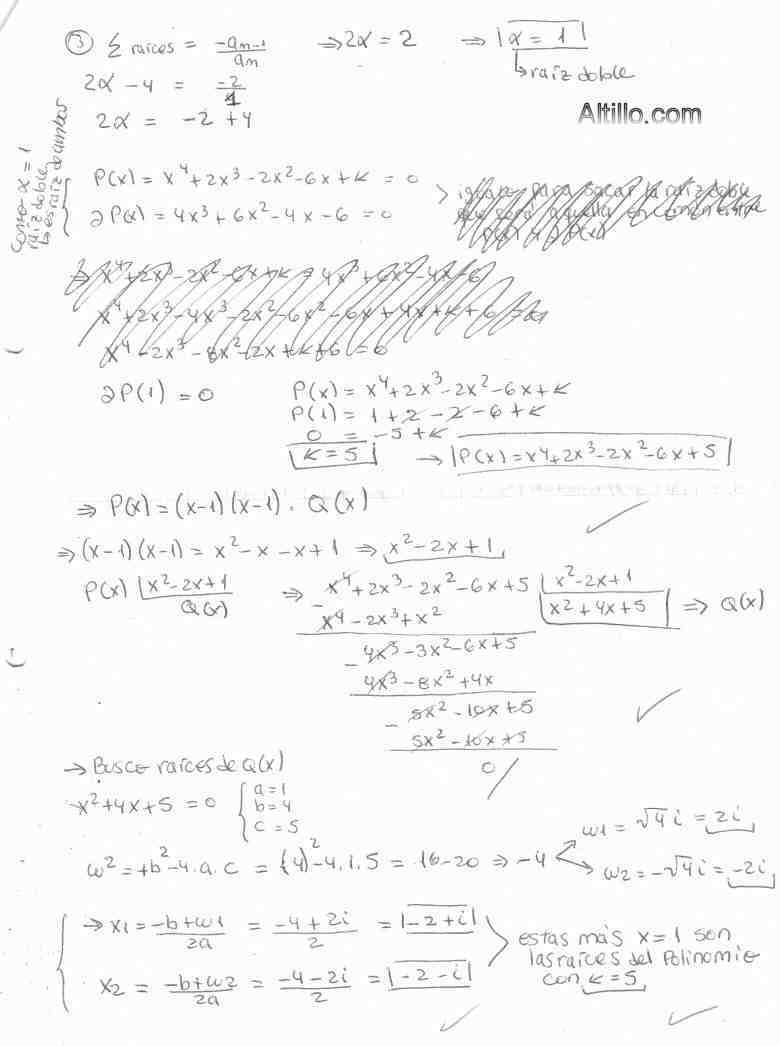 ③ ∑ raíces = -aₙ₋₁/aₙ ⇒ 2α = 2 ⇒ |α = 1|
↳ raíz doble
2α - 4 = -2/1
2α = -2 + 4
Altillo.com
Como α = 1
raíz doble
↳ es raíz de ambos
P(x) = x⁴ + 2x³ - 2x² - 6x + k = 0
∂P(x) = 4x³ + 6x² - 4x - 6 = 0
⇒ x⁴ + 2x³ - 2x² - 6x + k = 4x³ + 6x² - 4x - 6
x⁴ + 2x³ - 4x³ - 2x² - 6x² - 6x + 4x + k + 6 =
x⁴ - 2x³ - 8x² - 2x + k + 6 = 0
∂P(1) = 0 P(x) = x⁴ + 2x³ - 2x² - 6x + k
P(1) = 1 + 2 - 2 - 6 + k
0 = -5 + k
|k = 5| → |P(x) = x⁴ + 2x³ - 2x² - 6x + 5|
⇒ P(x) = (x-1) (x-1) . Q(x)
⇒ (x-1) (x-1) = x² - x - x + 1 ⇒ x² - 2x + 1
P(x) |x² - 2x + 1 ⇒ x⁴ + 2x³ - 2x² - 6x + 5 |x² - 2x + 1
Q(x) - x⁴ - 2x³ + x² |x² + 4x + 5| ⇒ Q(x)
4x³ - 3x² - 6x + 5
- 4x³ - 8x² + 4x
5x² - 10x + 5
- 5x² - 10x + 5
0
→ Busco raíces de Q(x)
x² + 4x + 5 = 0 { a = 1
b = 4
c = 5
ω² = +b² - 4.a.c = (4)² - 4.1.5 = 16 - 20 ⇒ -4
ω1 = √4 i = 2i
ω2 = -√4 i = -2i
→ x1 = -b+ω1/2a = -4+2i/2 = |-2+i|
x2 = -b+ω2/2a = -4-2i/2 = |-2-i|
estas más x = 1 son
las raíces del Polinomio
con k = 5